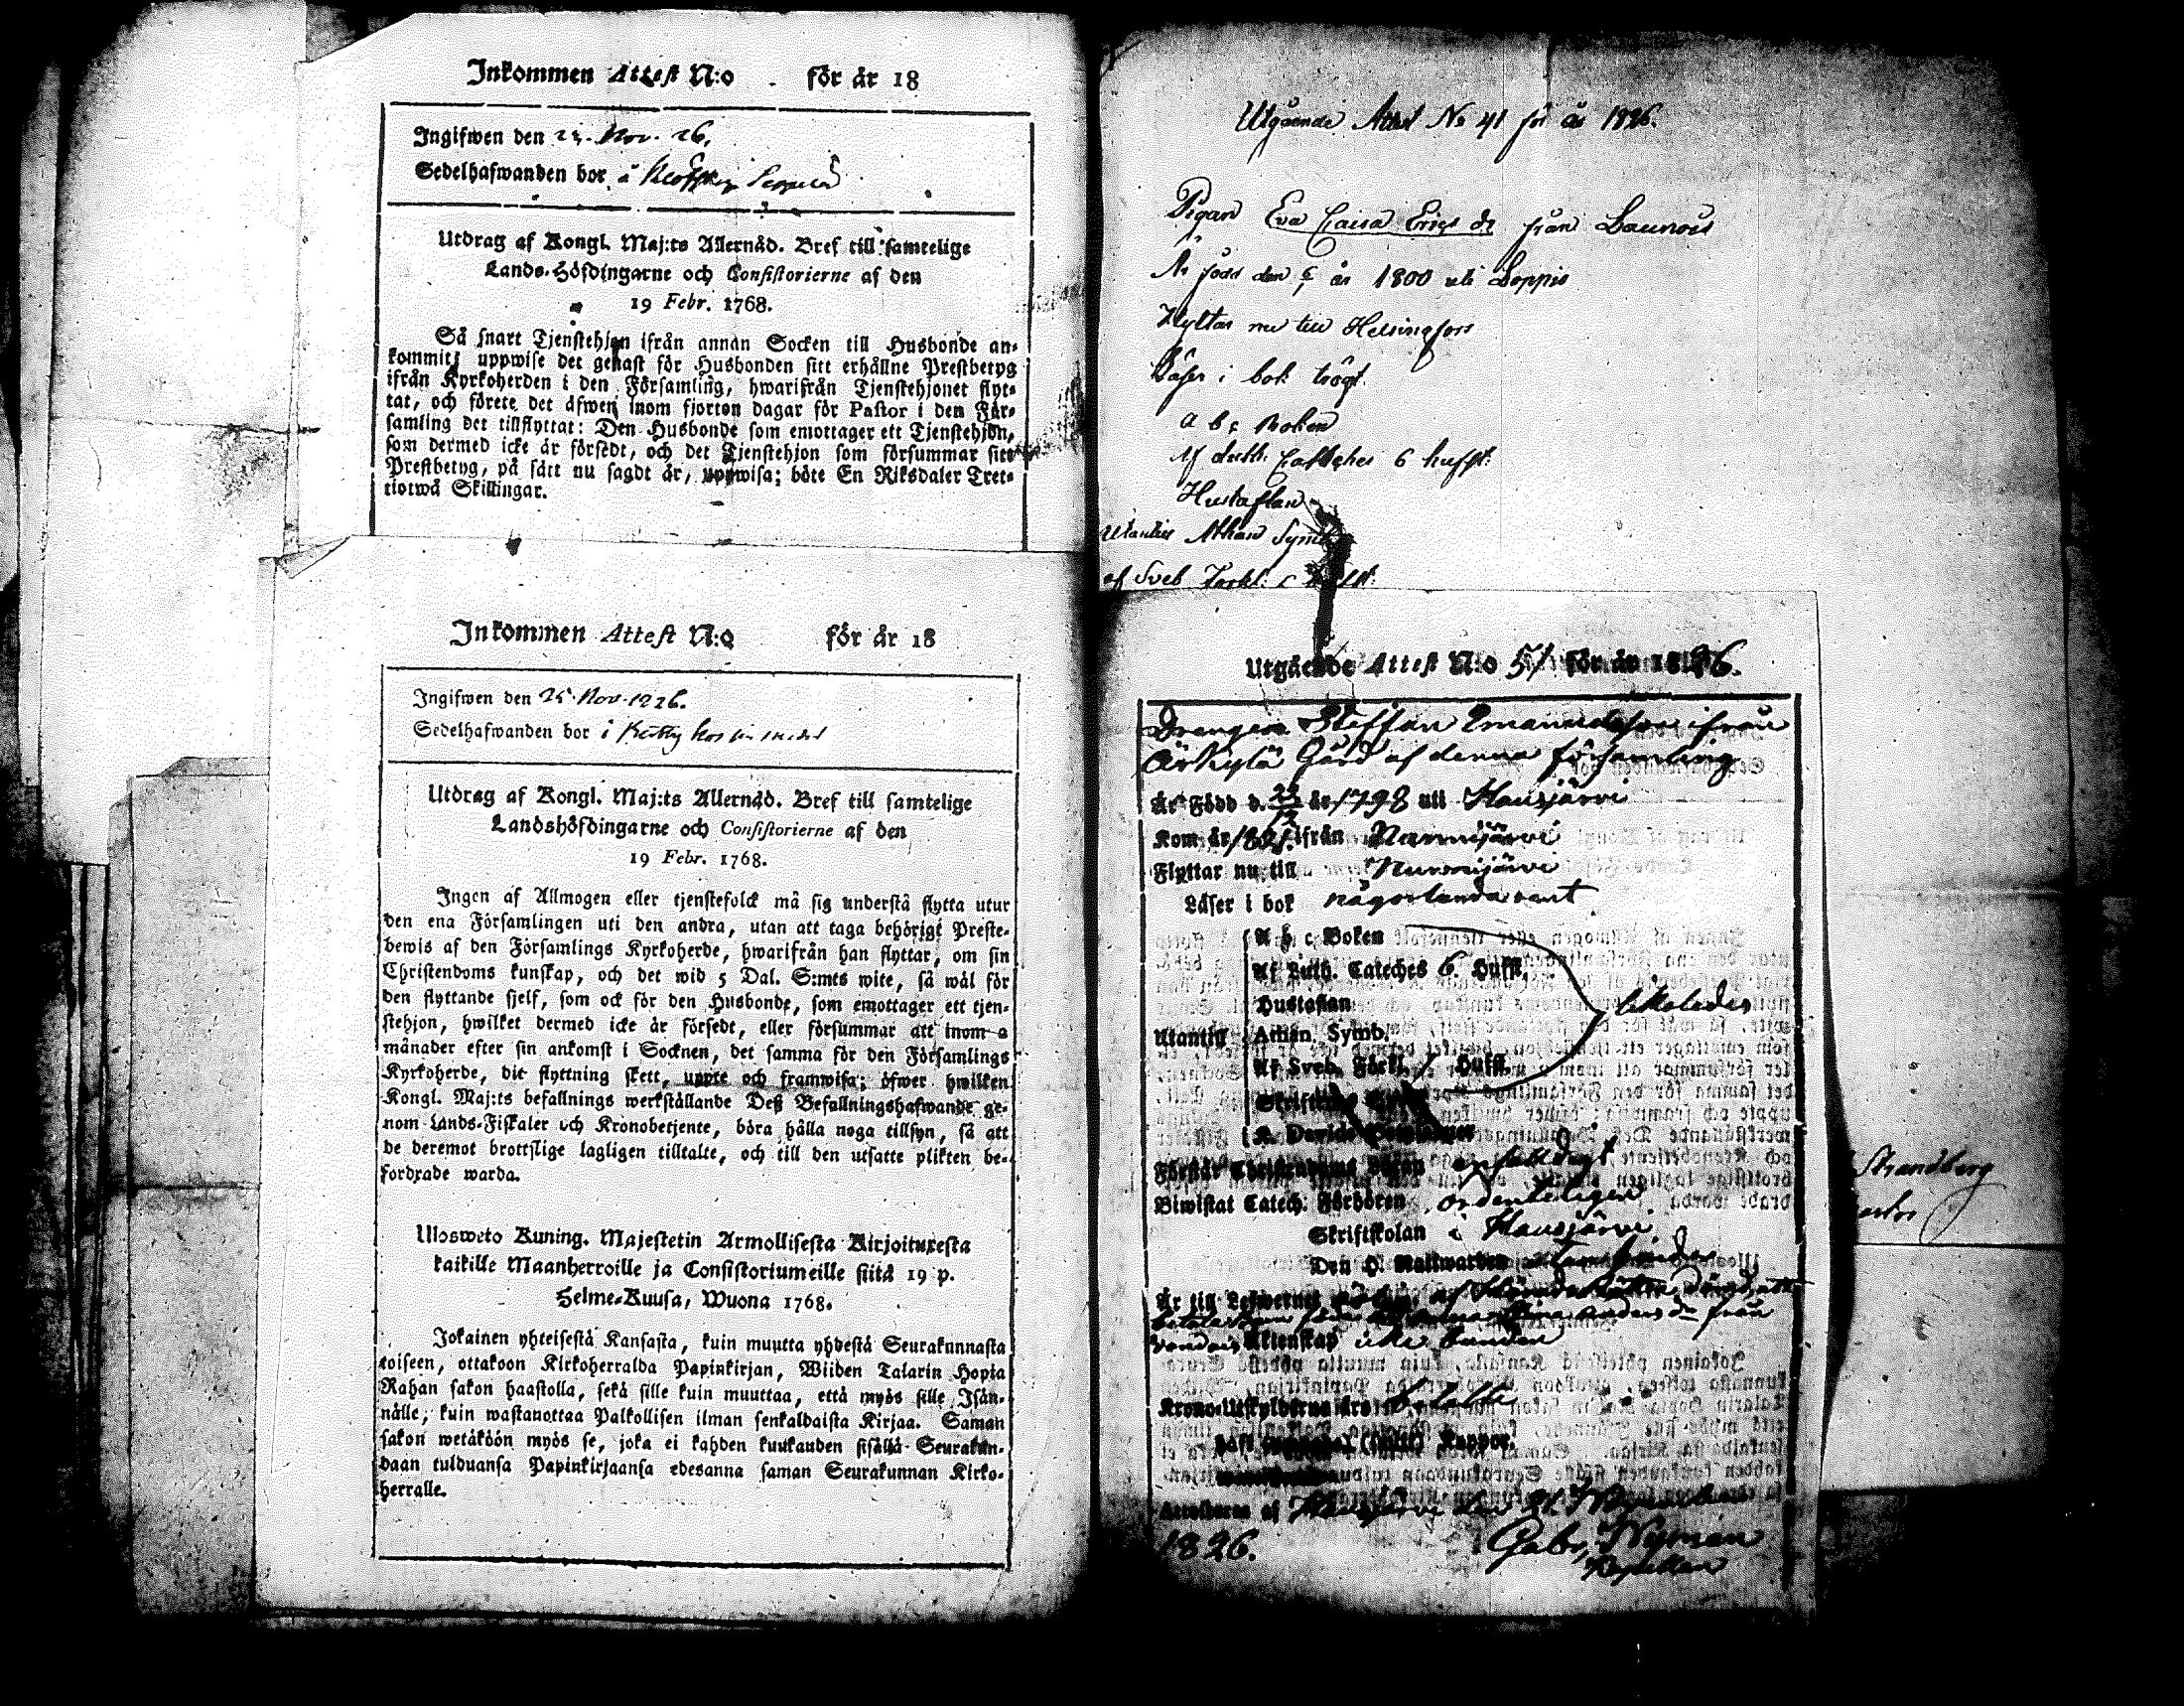 Inkommen Attest N:o för år 18
Ingifwen den Nov. 26.
Sedelhafwanden bor
Utdrag af Kongl. Maj:ts Allernåd. Bref till samtelige
Lands-Höfdingarne och Consistorierne af den
19 Febr. 1768.
Så snart Tjenstehjon ifrån annan Socken till Husbonde an-
kommit, uppwise det genast för Husbonden sitt erhållne Prestbetyg
ifrån Kyrkoherden i den Församling, hwarifrån Tjenstehjonet flyt-
tat, och förete det äfwen inom fjorton dagar för Pastor i den För-
samling det tillflyttat: Den Husbonde som emottager ett Tjenstehjon,
som dermed icke är försedt, och det Tjenstehjon som försummar sitt
Prestbetyg, på sätt nu sagdt är, uppwisa; böte En Riksdaler Tret-
tiotwå Skillingar.
Inkommen Attest N:o för år 18
Ingifwen den 25 Nov. 1826.
Sedelhafwanden bor i
Utdrag af Kongl. Maj:ts Allernåd. Bref till samtelige
Landshöfdingarne och Consistorierne af den
19 Febr. 1768.
Ingen af Allmogen eller tjenstefolck må sig understå flytta utur
den ena Församlingen uti den andra, utan att taga behörigt Preste-
bewis af den Församlings Kyrkoherde, hwarifrån han flyttar, om sin
Christendoms kunskap, och det wid 5 Dal. S:mts wite, så wäl för
den flyttande sjelf, som ock för den Husbonde, som emottager ett tjen-
stehjon, hwilket dermed icke är försedt, eller försummar att inom 2
månader efter sin ankomst i Socknen, det samma för den Församlings
Kyrkoherde, dit flyttning skett, uppte och framwisa; öfwer hwilken
Kongl. Maj:ts befallnings werkställande Deß Befallningshafwande ge-
nom Lands-Fiskaler och Kronobetjente, böra hålla noga tillsyn, så att
de deremot brottslige lagligen tilltalte, och till den utsatte plikten be-
fordrade warda.
Ulosweto Kuning. Majestetin Armollisesta Kirjoituxesta
kaikille Maanherroille ja Consistoriumeille siitä 19 p.
Helme-Kuusa, Wuona 1768.
Jokainen yhteisestä Kansasta, kuin muutta yhdestä Seurakunnasta
toiseen, ottakoon Kirkoherralda Papinkirjan, Wiiden Talarin Hopia
Rahan sakon haastolla, sekä sille kuin muuttaa, että myös sille Isän-
nälle, kuin wastanottaa Palkollisen ilman senkaldaista Kirjaa. Saman
sakon wetäköön myös se, joka ei kahden kuukauden sisällä Seurakun-
daan tulduansa Papinkirjaansa edesanna saman Seurakunnan Kirko-
herralle.
Utgående Attest No 41 för år 1826.
Pigan Eva Caisa Erics dr från Launois
Är född den år 1800 uti Loppis
Flyttar nu till Helsingfors
Läser i bok trögt.
a b c Boken
Af Luth. Cateches 6 hufst.
Hustaflan
Utantill Athan Symb
af Sveb Förkl.
Utgående Attest N:o 51 för år 1826.
Drengen Steffan Emanuelsson ifrån
Erkylä Gård af denna församling
Är Född d. 22/12 år 1798 uti Hausjärvi
Kom år 1821 ifrån Nurmijärvi
Flyttar nu till Nurmijärvi
Läser i bok någorlunda rent
A b c Boken
Af Luth. Cateches 6. Hufst.
Hustaflan likaledes
Utantill Athan. Symb.
Af Sveb. Förkl. Hufst.
K. Davids
Förstår Christendoms Läran enfalldigt
Biwistat Catech. Förhören ordenteligen
Skriftskolan i Hausjärvi
Den H. Nattwarden
Är till Lefwernet
Äktenskap icke bunden
Krono-Utskylderna äro betalte
Attesteras af Hausjärvi den 21 November
1826.
Gabr. Nyman
Strandberg